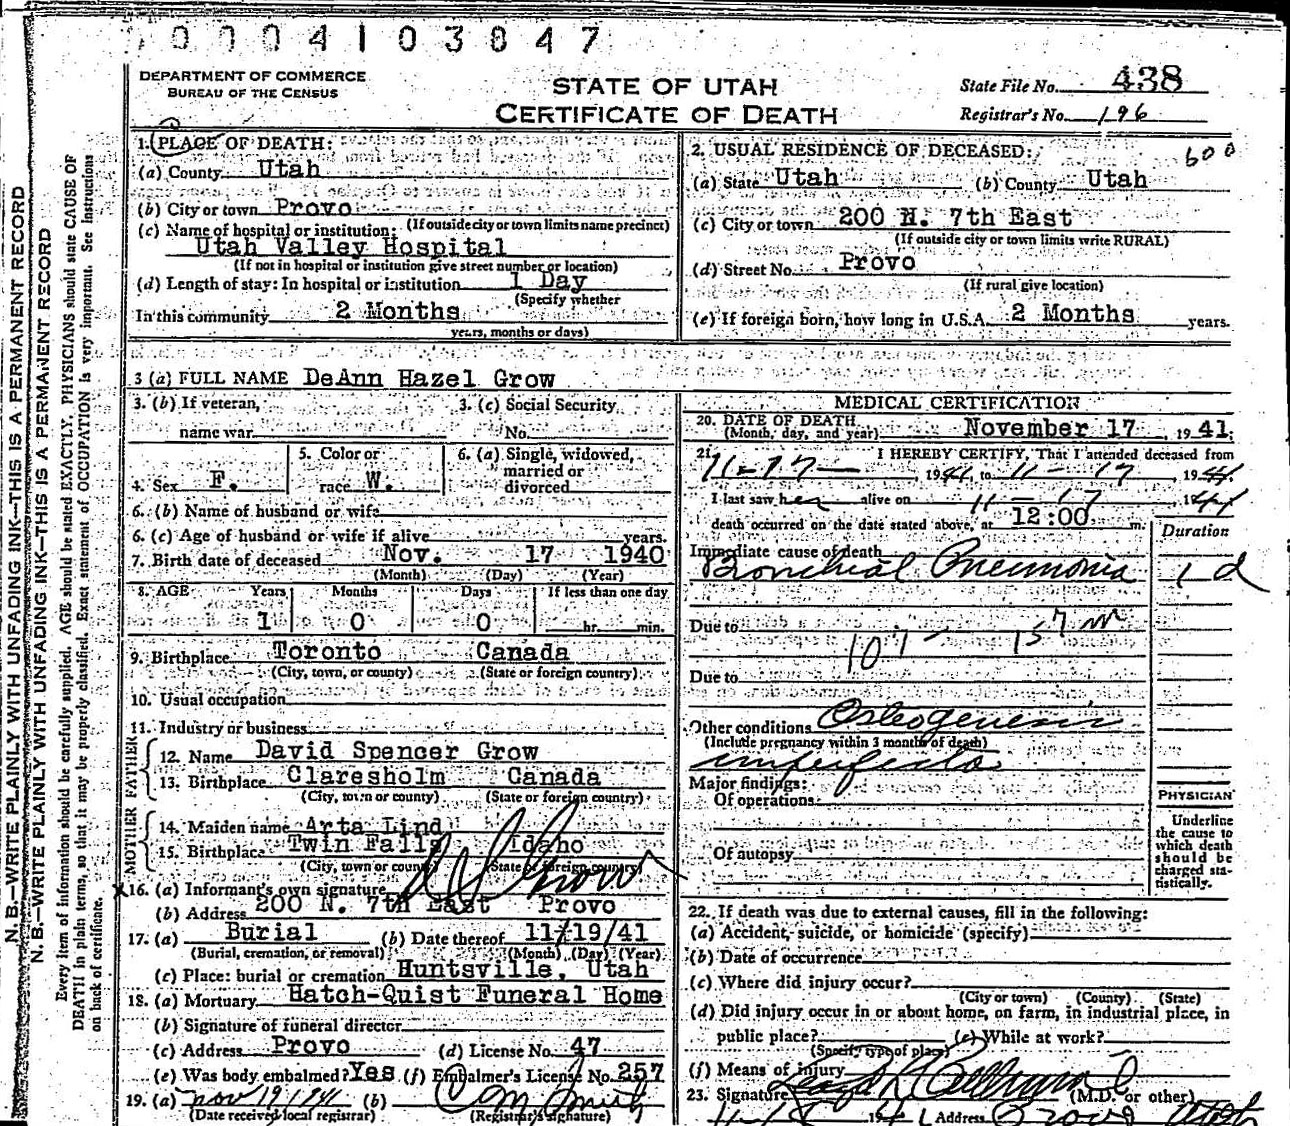 0004103847
DEPARTMENT OF COMMERCE
BUREAU OF THE CENSUS
STATE OF UTAH
CERTIFICATE OF DEATH
State File No. 438
Registrar's No. 196
N. B.—WRITE PLAINLY WITH UNFADING INK—THIS IS A PERMANENT RECORD
N. B.—WRITE PLAINLY WITH UNFADING INK—THIS IS A PERMANENT RECORD
Every item of information should be carefully supplied. AGE should be stated EXACTLY. PHYSICIANS should state CAUSE OF
DEATH in plain terms, so that it may be properly classified. Exact statement of OCCUPATION is very important. See instructions
on back of certificate.
1. PLACE OF DEATH:
(a) County Utah
(b) City or town Provo
(If outside city or town limits name precinct)
(c) Name of hospital or institution:
Utah Valley Hospital
(If not in hospital or institution give street number or location)
(d) Length of stay: In hospital or institution 1 Day
(Specify whether
In this community 2 Months
years, months or days)
2. USUAL RESIDENCE OF DECEASED: 600
(a) State Utah (b) County Utah
(c) City or town 200 N. 7th East
(If outside city or town limits write RURAL)
(d) Street No. Provo
(If rural give location)
(e) If foreign born, how long in U.S.A. 2 Months years.
3 (a) FULL NAME DeAnn Hazel Grow
3. (b) If veteran, 3. (c) Social Security
name war No.
4. Sex F. 5. Color or race W. 6. (a) Single, widowed, married or divorced
6. (b) Name of husband or wife
6. (c) Age of husband or wife if alive years.
7. Birth date of deceased Nov. 17 1940
(Month) (Day) (Year)
8. AGE Years Months Days If less than one day
1 0 0 hr. min.
9. Birthplace Toronto Canada
(City, town, or county) (State or foreign country)
10. Usual occupation
11. Industry or business
FATHER
12. Name David Spencer Grow
13. Birthplace Claresholm Canada
(City, town or county) (State or foreign country)
MOTHER
14. Maiden name Arta Lind
15. Birthplace Twin Falls Idaho
(City, town or county) (State or foreign country)
x16. (a) Informant's own signature D S Grow
(b) Address 200 N. 7th East Provo
17. (a) Burial (b) Date thereof 11/19/41
(Burial, cremation, or removal) (Month) (Day) (Year)
(c) Place: burial or cremation Huntsville, Utah
18. (a) Mortuary Hatch-Quist Funeral Home
(b) Signature of funeral director
(c) Address Provo (d) License No. 47
(e) Was body embalmed? Yes (f) Embalmer's License No. 257
19. (a) Nov 19 1941 (b)
(Date received local registrar) (Registrar's signature)
MEDICAL CERTIFICATION
20. DATE OF DEATH
(Month, day, and year) November 17, 1941.
21. I HEREBY CERTIFY, That I attended deceased from
11-17- 1941, to 11-17 1941.
I last saw her alive on 11-17 1941
death occurred on the date stated above, at 12:00 m.
Duration
Immediate cause of death
Bronchial Pneumonia 1 d
Due to
107
Due to
Other conditions Osteogenesis
(Include pregnancy within 3 months of death)
imperfecta
Major findings:
Of operations
Of autopsy
PHYSICIAN
Underline
the cause to
which death
should be
charged sta-
tistically.
22. If death was due to external causes, fill in the following:
(a) Accident, suicide, or homicide (specify)
(b) Date of occurrence
(c) Where did injury occur?
(City or town) (County) (State)
(d) Did injury occur in or about home, on farm, in industrial place, in
public place? (e) While at work?
(Specify type of place)
(f) Means of injury
23. Signature (M.D. or other)
11-18 1941 Address Provo Utah